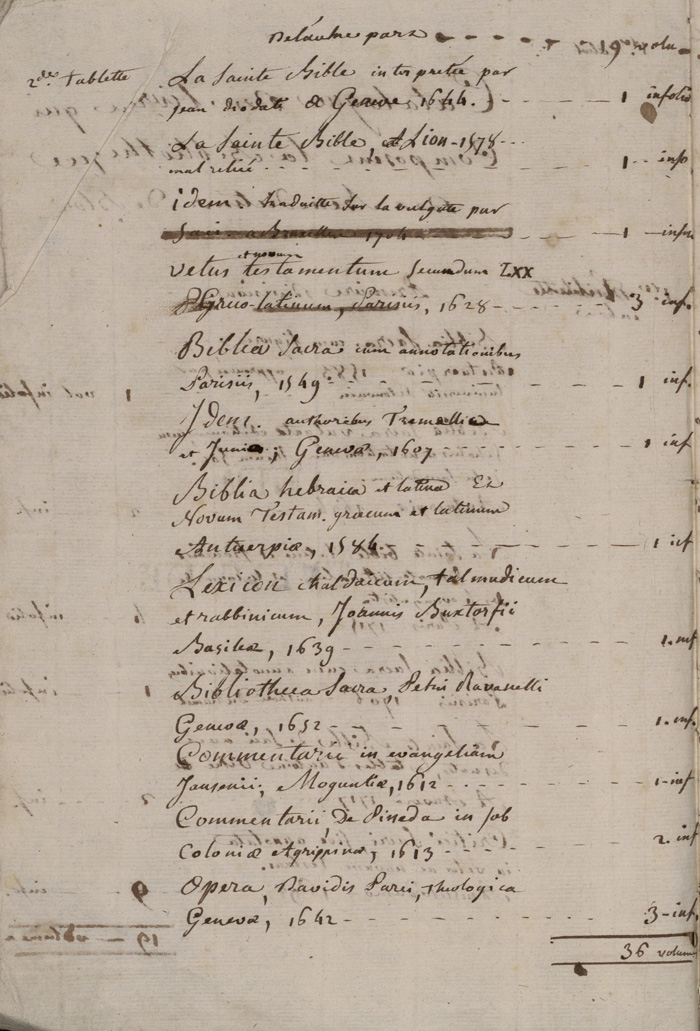 De l'autre part - - - - - 19 volu
2de Tablette
La Sainte Bible interpretée par
jean diodati a Geneve 1644. - - - - 1 infolio
La Sainte Bible, a Lion - 1578 - -
mal reliée - - - - 1 - - inf
idem. traduitte sur la vulgate par
- - - 1 - inf
et novum
vetus testamentum secundum LXX
Græco-latinum, Parisiis, 1628 - - - 3 inf.
Biblia Sacra cum annotationibus
Parisiis, 1549 - - - - 1 inf.
Idem. authoribus Tremellio
et Junio, Genevæ, 1607 - - - - 1 inf
Biblia hebraica et latina Et
Novum Testam. græcum et latinum
Antuerpiæ, 1584 - - - - 1 inf
Lexicon chaldaicum, talmudicum
et rabbinicum, Joannis Buxtorfii
Basileæ, 1639 - - - - 1. inf
Bibliotheca Sacra Petri Ravanelli
Genevæ, 1652 - - - - 1. inf.
Commentarii in evangelium
Jansenii, Moguntiæ, 1612 - - - - 1 - inf
Commentarii De Pineda in Job
Coloniæ Agrippinæ, 1613 - - - - 2. inf
Opera Davidis Parei, theologica
Genevæ, 1642 - - - - 3 - inf.
36 volum